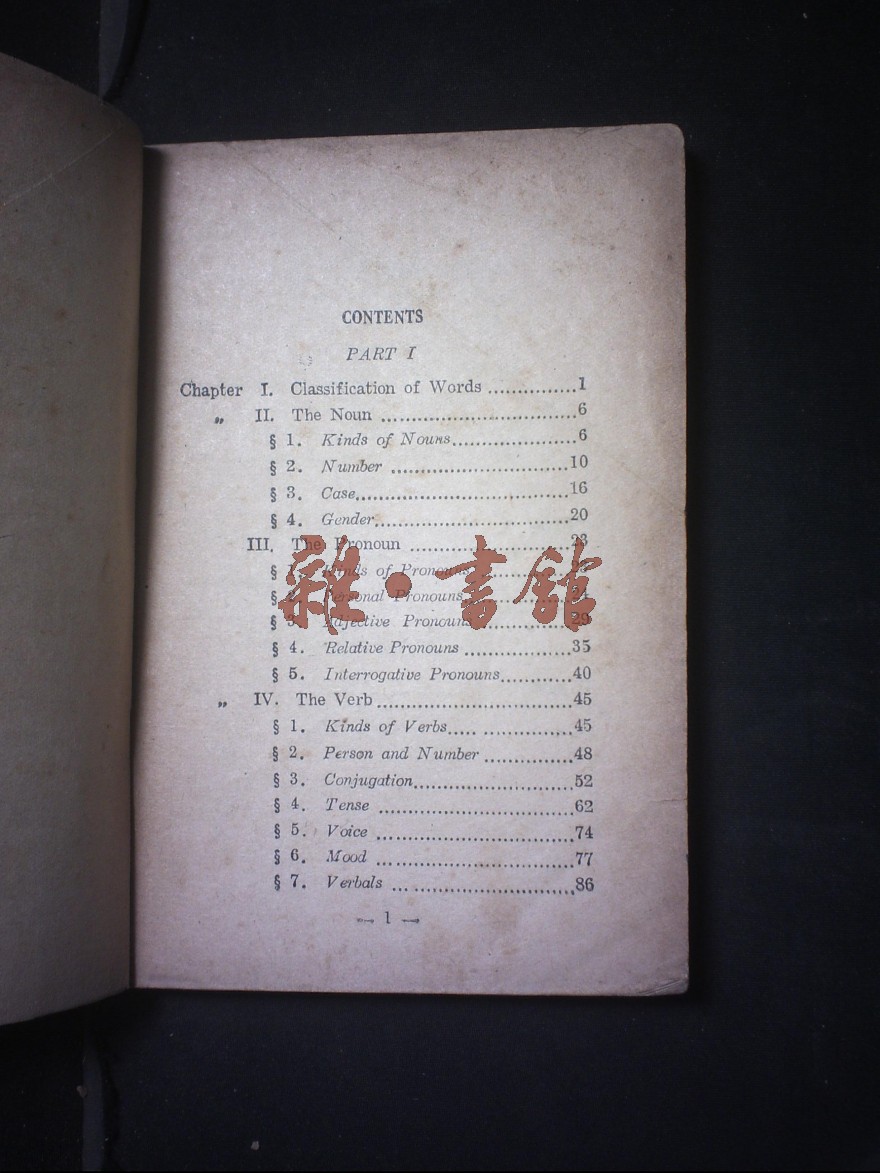 CONTENTS
PART I
Chapter I. Classification of Words ...............1
„ II. The Noun .................................6
§ 1. Kinds of Nouns.....................6
§ 2. Number ..............................10
§ 3. Case....................................16
§ 4. Gender.................................20
III. The Pronoun ...........................23
§ 1. Kinds of Pronouns
§ 2. Personal Pronouns
§ 3. Adjective Pronouns...................29
§ 4. Relative Pronouns ..................35
§ 5. Interrogative Pronouns............40
„ IV. The Verb.................................45
§ 1. Kinds of Verbs..... ...............45
§ 2. Person and Number ...............48
§ 3. Conjugation...........................52
§ 4. Tense .................................62
§ 5. Voice .................................74
§ 6. Mood ... ..............................77
§ 7. Verbals ... ...........................86
1
雜·書館